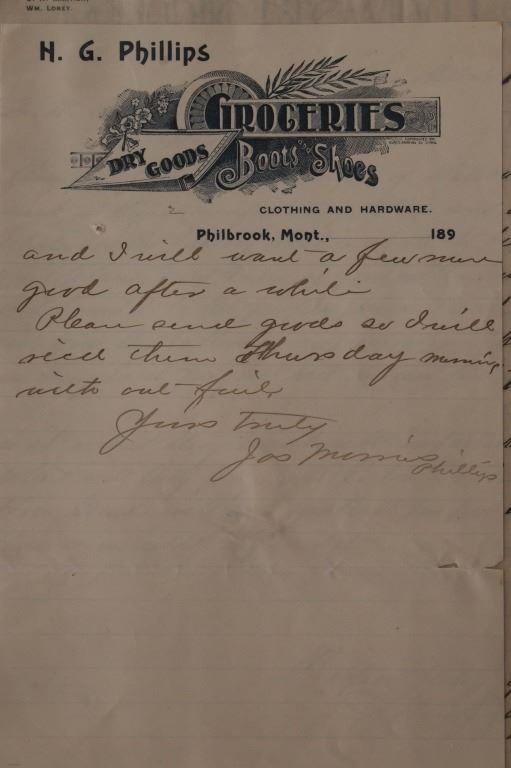 WM. LOREY.
H. G. Phillips
GROCERIES
DRY GOODS
Boots and Shoes
CLOTHING AND HARDWARE.
Philbrook, Mont., 189
and I will want a few more
good after a while
Please send goods so I will
recd them Thursday morning
with out fail
Yours truly
Jos Morris
Phillips